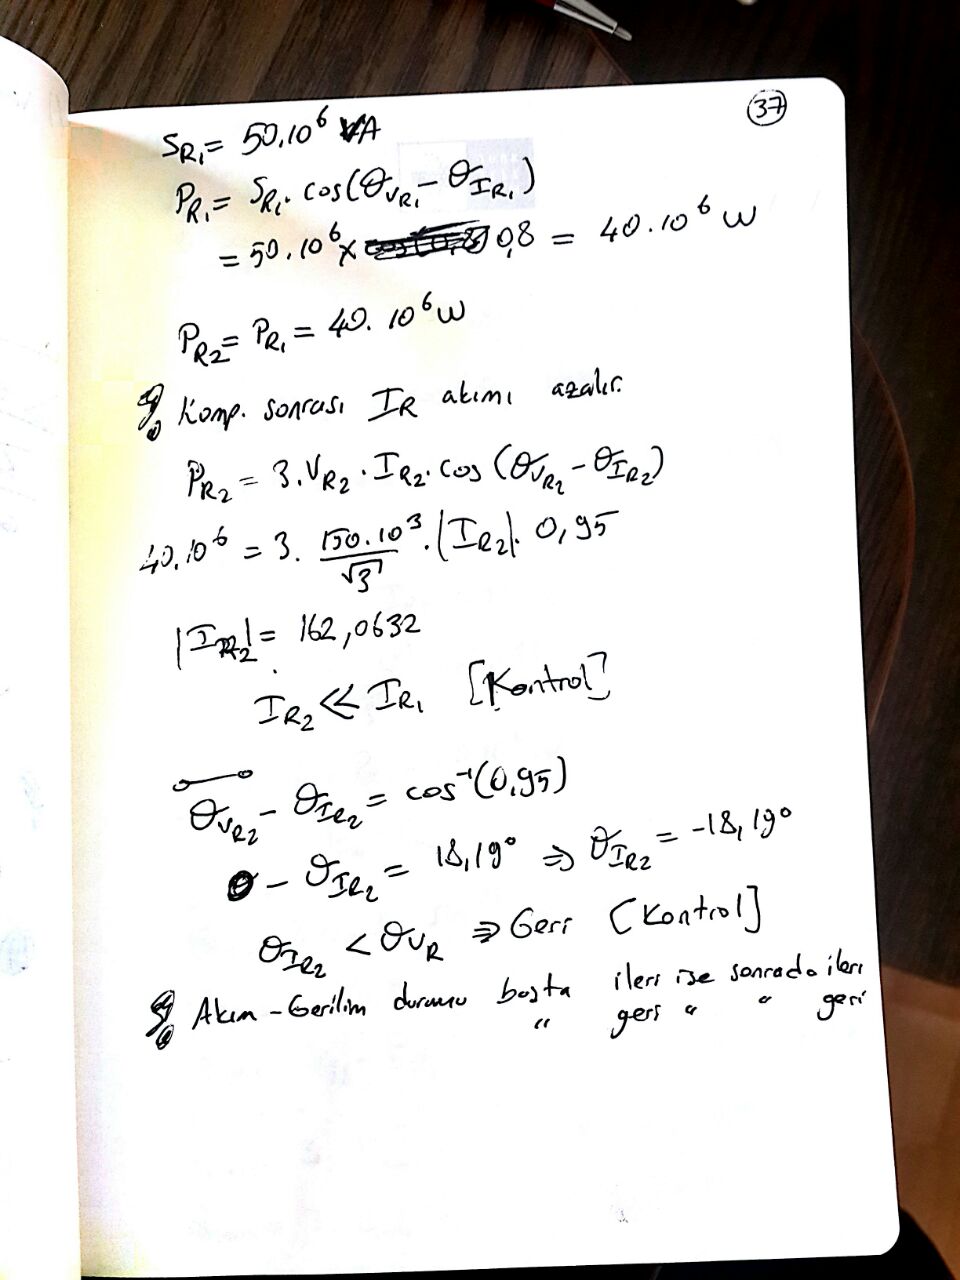 37
S_R1 = 50.10⁶ VA
P_R1 = S_R1 . cos(θ_VR1 - θ_IR1)
= 50.10⁶ x 0,8 = 40.10⁶ W
P_R2 = P_R1 = 40.10⁶ W
Komp. sonrası I_R akımı azalır.
P_R2 = 3.V_R2 . I_R2 . cos (θ_VR2 - θ_IR2)
40.10⁶ = 3. 150.10³/√3 . |I_R2| . 0,95
|I_R2| = 162,0632
I_R2 << I_R1 [Kontrol]
θ_VR2 - θ_IR2 = cos⁻¹(0,95)
0 - θ_IR2 = 18,19° ⇒ θ_IR2 = -18,19°
θ_IR2 < θ_VR ⇒ Geri [Kontrol]
Akım - Gerilim durumu başta ileri ise sonrada ileri
" geri " " geri